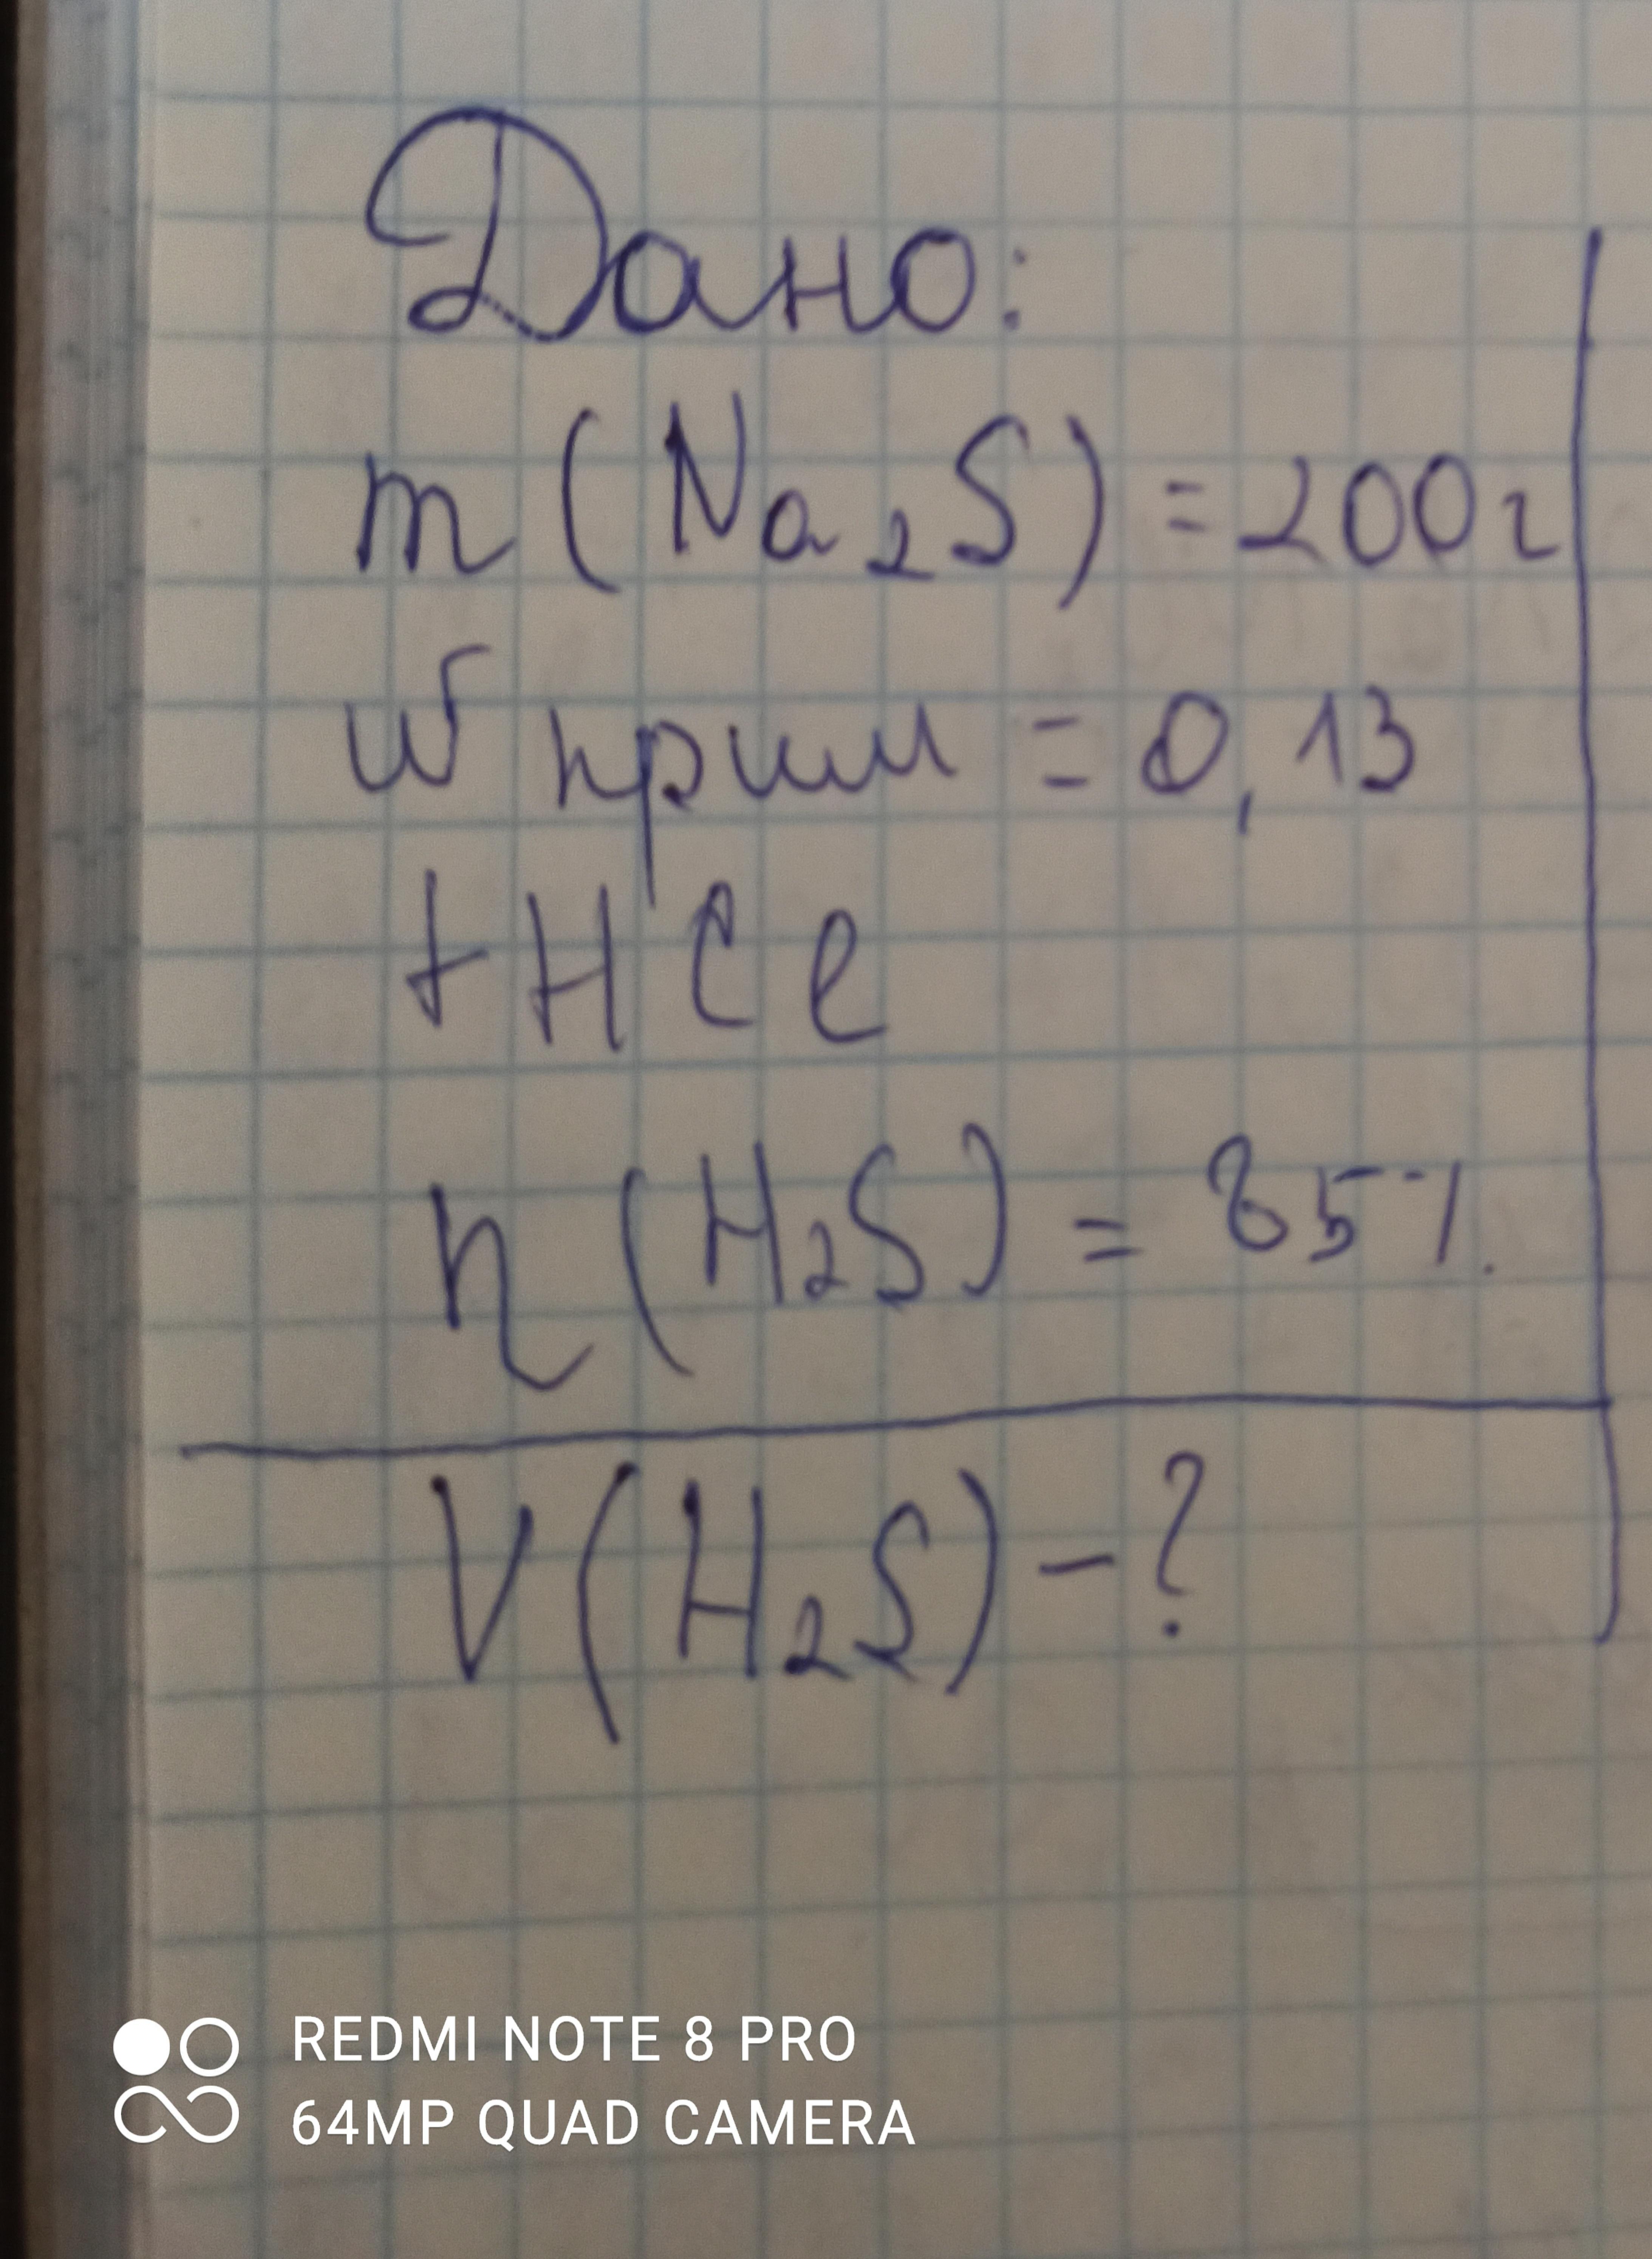 Дано:
m (Na₂S) = 200г
w прим = 0,13
+ HCl
η (H₂S) = 85%
V (H₂S) - ?
REDMI NOTE 8 PRO
64MP QUAD CAMERA